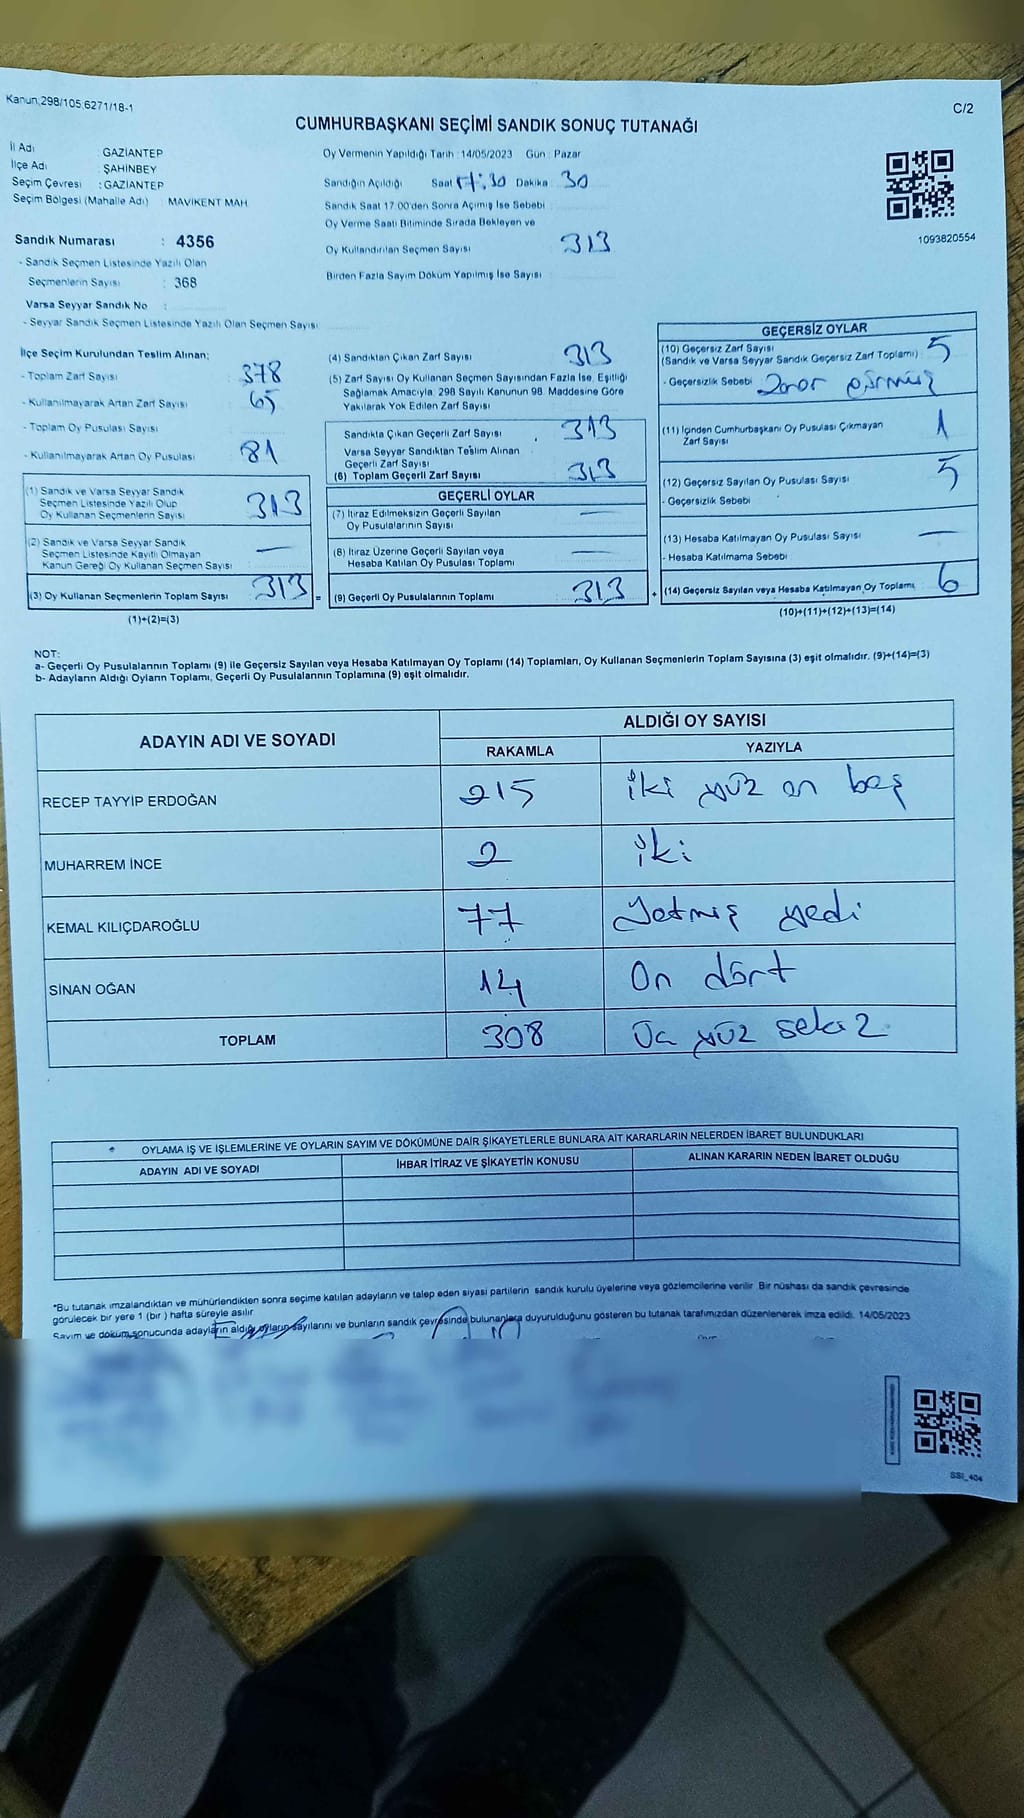 Kanun;298/105,6271/18-1
C/2
CUMHURBAŞKANI SEÇİMİ SANDIK SONUÇ TUTANAĞI
İl Adı : GAZİANTEP
İlçe Adı : ŞAHİNBEY
Seçim Çevresi : GAZİANTEP
Seçim Bölgesi (Mahalle Adı) : MAVİKENT MAH.
Sandık Numarası : 4356
- Sandık Seçmen Listesinde Yazılı Olan
Seçmenlerin Sayısı : 368
Varsa Seyyar Sandık No :
- Seyyar Sandık Seçmen Listesinde Yazılı Olan Seçmen Sayısı
Oy Vermenin Yapıldığı Tarih : 14/05/2023 Gün : Pazar
Sandığın Açıldığı Saat 17:30 Dakika 30
Sandık Saat 17.00'den Sonra Açımış İse Sebebi
Oy Verme Saati Bitiminde Sırada Bekleyen ve
Oy Kullandırılan Seçmen Sayısı 313
Birden Fazla Sayım Döküm Yapılmış İse Sayısı
1093820554
İlçe Seçim Kurulundan Teslim Alınan;
- Toplam Zarf Sayısı 378
- Kullanılmayarak Artan Zarf Sayısı 65
- Toplam Oy Pusulası Sayısı
- Kullanılmayarak Artan Oy Pusulası 81
(1) Sandık ve Varsa Seyyar Sandık
Seçmen Listesinde Yazılı Olup
Oy Kullanan Seçmenlerin Sayısı 313
(2) Sandık ve Varsa Seyyar Sandık
Seçmen Listesinde Kayıtlı Olmayan
Kanun Gereği Oy Kullanan Seçmen Sayısı —
(3) Oy Kullanan Seçmenlerin Toplam Sayısı 313 =
(1)+(2)=(3)
(4) Sandıktan Çıkan Zarf Sayısı 313
(5) Zarf Sayısı Oy Kullanan Seçmen Sayısından Fazla İse, Eşitliği
Sağlamak Amacıyla, 298 Sayılı Kanunun 98. Maddesine Göre
Yakılarak Yok Edilen Zarf Sayısı
Sandıkta Çıkan Geçerli Zarf Sayısı 313
Varsa Seyyar Sandıktan Teslim Alınan
Geçerli Zarf Sayısı
(6) Toplam Geçerli Zarf Sayısı 313
GEÇERLİ OYLAR
(7) İtiraz Edilmeksizin Geçerli Sayılan
Oy Pusulalarının Sayısı —
(8) İtiraz Üzerine Geçerli Sayılan veya
Hesaba Katılan Oy Pusulası Toplamı —
(9) Geçerli Oy Pusulalarının Toplamı 313 +
GEÇERSİZ OYLAR
(10) Geçersiz Zarf Sayısı 5
(Sandık ve Varsa Seyyar Sandık Geçersiz Zarf Toplamı)
- Geçersizlik Sebebi
(11) İçinden Cumhurbaşkanı Oy Pusulası Çıkmayan
Zarf Sayısı 1
(12) Geçersiz Sayılan Oy Pusulası Sayısı 5
- Geçersizlik Sebebi
(13) Hesaba Katılmayan Oy Pusulası Sayısı —
- Hesaba Katılmama Sebebi
(14) Geçersiz Sayılan veya Hesaba Katılmayan Oy Toplamı 6
(10)+(11)+(12)+(13)=(14)
NOT:
a- Geçerli Oy Pusulalarının Toplamı (9) ile Geçersiz Sayılan veya Hesaba Katılmayan Oy Toplamı (14) Toplamları, Oy Kullanan Seçmenlerin Toplam Sayısına (3) eşit olmalıdır. (9)+(14)=(3)
b- Adayların Aldığı Oyların Toplamı, Geçerli Oy Pusulalarının Toplamına (9) eşit olmalıdır.
ADAYIN ADI VE SOYADI ALDIĞI OY SAYISI
RAKAMLA YAZIYLA
RECEP TAYYİP ERDOĞAN 215 iki yüz on beş
MUHARREM İNCE 2 iki
KEMAL KILIÇDAROĞLU 77 Yetmiş yedi
SİNAN OĞAN 14 On dört
TOPLAM 308 Üç yüz sekiz
* OYLAMA İŞ VE İŞLEMLERİNE VE OYLARIN SAYIM VE DÖKÜMÜNE DAİR ŞİKAYETLERLE BUNLARA AİT KARARLARIN NELERDEN İBARET BULUNDUKLARI
ADAYIN ADI VE SOYADI İHBAR İTİRAZ VE ŞİKAYETİN KONUSU ALINAN KARARIN NEDEN İBARET OLDUĞU
*Bu tutanak imzalandıktan ve mühürlendikten sonra seçime katılan adayların ve talep eden siyasi partilerin sandık kurulu üyelerine veya gözlemcilerine verilir. Bir nüshası da sandık çevresinde
görülecek bir yere 1 (bir ) hafta süreyle asılır.
Sayım ve döküm sonucunda adayların aldığı oyların sayılarını ve bunların sandık çevresinde bulunanlara duyurulduğunu gösteren bu tutanak tarafımızdan düzenlenerek imza edildi. 14/05/2023
SSI_404